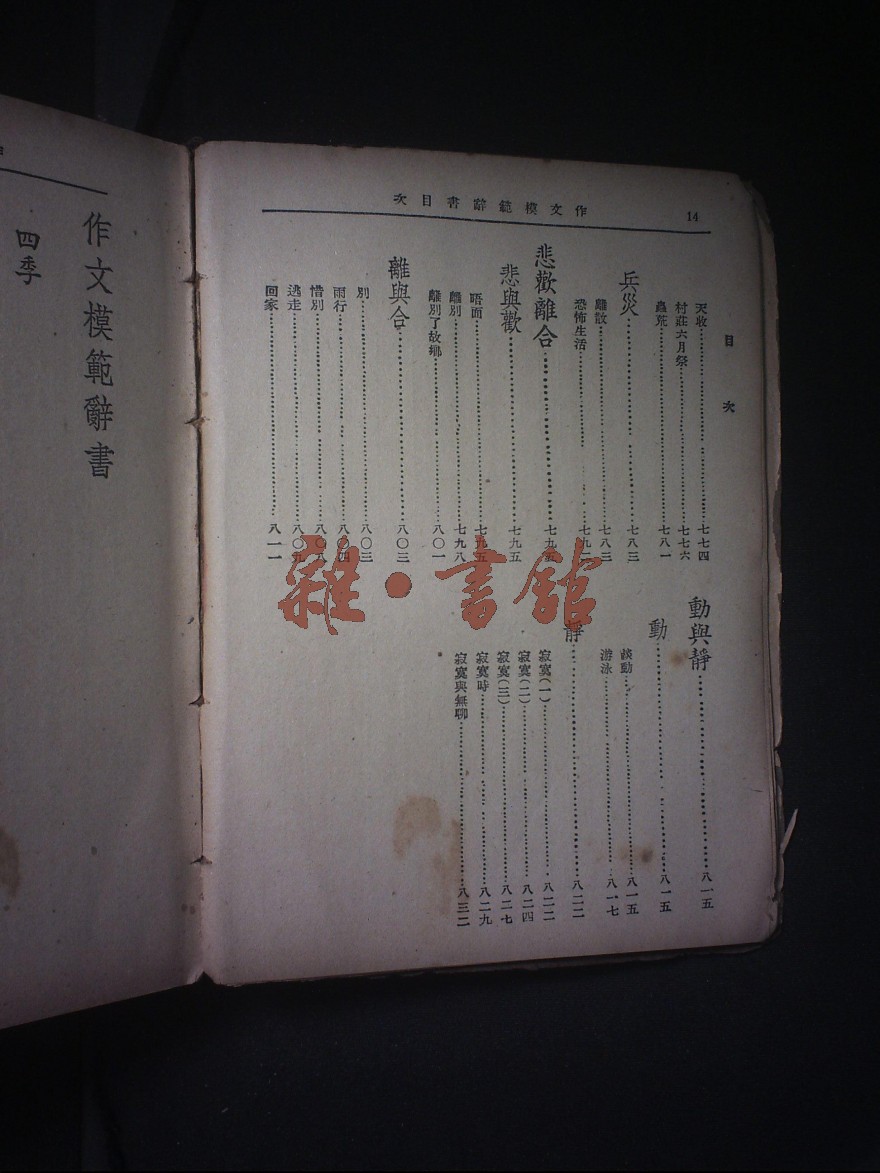 作文模範辭書目次
14
目次
天收……七七四
村莊六月祭……七七六
蟲荒……七八一
兵災……七八三
離散……七八三
恐怖生活……七九二
悲歡離合……七九五
悲與歡……七九五
晤面……七九五
離別……七九八
離別了故鄉……八〇一
離與合……八〇三
別……八〇三
雨行……八〇四
惜別……八〇八
逃走……八〇九
回家……八一一
動與靜……八一五
動……八一五
談動……八一五
游泳……八一七
靜……八二二
寂寞(一)……八二二
寂寞(二)……八二四
寂寞(三)……八二七
寂寞時……八二九
寂寞與無聊……八三二
作文模範辭書
四季
雜·書館